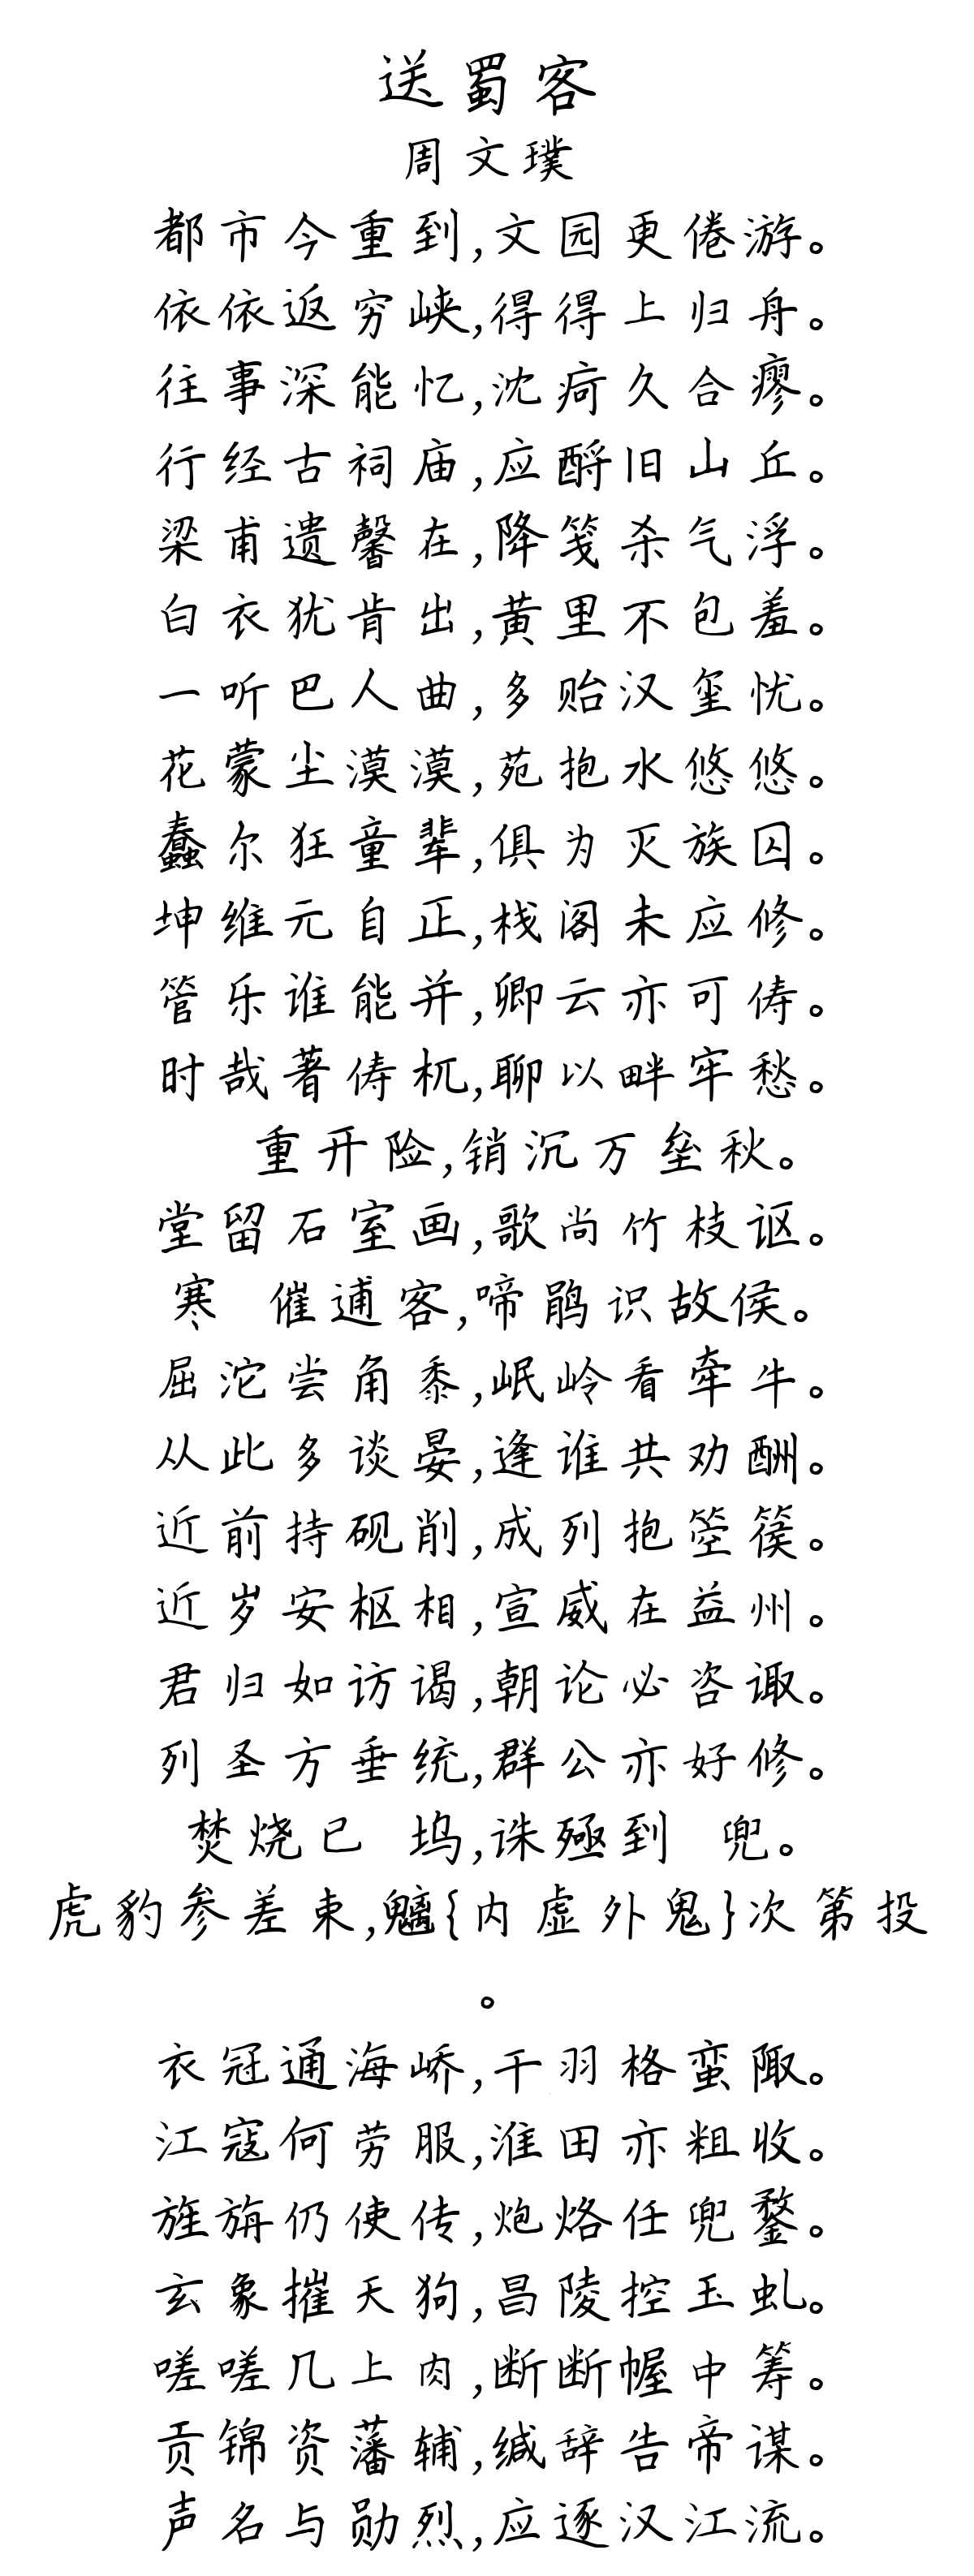 送蜀客
周文璞
都市今重到,文园更倦游。
依依返穷峡,得得上归舟。
往事深能忆,沈疴久合瘳。
行经古祠庙,应酹旧山丘。
梁甫遗馨在,降笺杀气浮。
白衣犹肯出,黄里不包羞。
一听巴人曲,多贻汉玺忧。
花蒙尘漠漠,苑抱水悠悠。
蠢尔狂童辈,俱为灭族囚。
坤维元自正,栈阁未应修。
管乐谁能并,卿云亦可俦。
时哉著俦杌,聊以畔牢愁。
重开险,销沉万垒秋。
堂留石室画,歌尚竹枝讴。
寒 催逋客,啼鹃识故侯。
屈沱尝角黍,岷岭看牵牛。
从此多谈晏,逢谁共劝酬。
近前持砚削,成列抱箜篌。
近岁安枢相,宣威在益州。
君归如访谒,朝论必咨诹。
列圣方垂统,群公亦好修。
焚烧已 坞,诛殛到 兜。
虎豹参差束,魑{内虚外鬼}次第投
。
衣冠通海峤,干羽格蛮陬。
江寇何劳服,淮田亦粗收。
旌旃仍使传,炮烙任兜鍪。
玄象摧天狗,昌陵控玉虬。
嗟嗟几上肉,断断幄中筹。
贡锦资藩辅,缄辞告帝谋。
声名与勋烈,应逐汉江流。